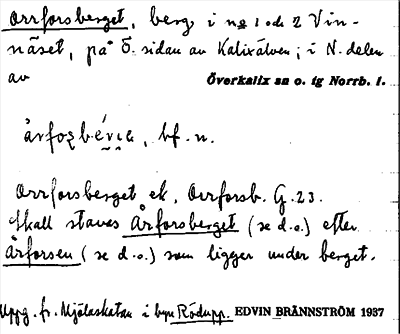 Orrforsberget, berg i n:o 1 och 2 Vin-
näset, på Ö. sidan av Kalixälven; i N. delen
av Överkalix sn o. tg Norrb. l.
bf. n.
Orrforsberget ek, Orrforsb. G. 23.
Skall stavas Årforsberget (se d.o.) efter
Årforsen (se d.o.) som ligger under berget.
Uppg. fr. Mjölaskatan i byn Rödupp. EDVIN BRÄNNSTRÖM 1937